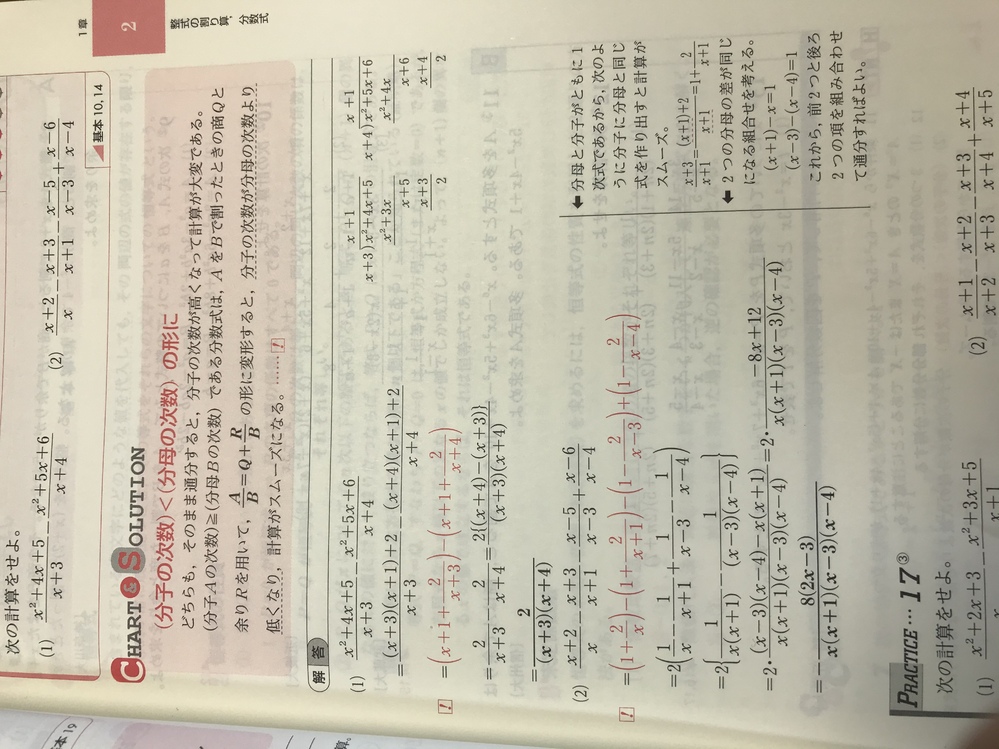 1章
2
整式の割り算, 分数式
次の計算をせよ。
(1) \frac{x^2+4x+5}{x+3}-\frac{x^2+5x+6}{x+4}
(2) \frac{x+2}{x}-\frac{x+3}{x+1}-\frac{x-5}{x-3}+\frac{x-6}{x-4}
基本 10, 14
CHART & SOLUTION
(分子の次数)<(分母の次数) の形に
どちらも，そのまま通分すると，分子の次数が高くなって計算が大変である。
(分子Aの次数)≧(分母Bの次数) である分数式は，AをBで割ったときの商Qと
余りRを用いて，\frac{A}{B}=Q+\frac{R}{B} の形に変形すると，分子の次数が分母の次数より
低くなり，計算がスムーズになる。……!
解答
(1) \frac{x^2+4x+5}{x+3}-\frac{x^2+5x+6}{x+4}
=\frac{(x+3)(x+1)+2}{x+3}-\frac{(x+4)(x+1)+2}{x+4}
! =\left(x+1+\frac{2}{x+3}\right)-\left(x+1+\frac{2}{x+4}\right)
=\frac{2}{x+3}-\frac{2}{x+4}=\frac{2\{(x+4)-(x+3)\}}{(x+3)(x+4)}
=\frac{2}{(x+3)(x+4)}
x+1
x+3)x^2+4x+5
x^2+3x
x+5
x+3
2
x+1
x+4)x^2+5x+6
x^2+4x
x+6
x+4
2
(2) \frac{x+2}{x}-\frac{x+3}{x+1}-\frac{x-5}{x-3}+\frac{x-6}{x-4}
! =\left(1+\frac{2}{x}\right)-\left(1+\frac{2}{x+1}\right)-\left(1-\frac{2}{x-3}\right)+\left(1-\frac{2}{x-4}\right)
=2\left(\frac{1}{x}-\frac{1}{x+1}+\frac{1}{x-3}-\frac{1}{x-4}\right)
=2\left\{\frac{1}{x(x+1)}-\frac{1}{(x-3)(x-4)}\right\}
=2・\frac{(x-3)(x-4)-x(x+1)}{x(x+1)(x-3)(x-4)}=2・\frac{-8x+12}{x(x+1)(x-3)(x-4)}
=-\frac{8(2x-3)}{x(x+1)(x-3)(x-4)}
← 分母と分子がともに1
次式であるから，次のよ
うに分子に分母と同じ
式を作り出すと計算が
スムーズ。
\frac{x+3}{x+1}=\frac{(x+1)+2}{x+1}=1+\frac{2}{x+1}
← 2つの分母の差が同じ
になる組合せを考える。
(x+1)-x=1
(x-3)-(x-4)=1
これから，前2つと後ろ
2つの項を組み合わせ
て通分すればよい。
PRACTICE…17③
次の計算をせよ。
(1) \frac{x^2+2x+3}{x}-\frac{x^2+3x+5}{x+1}
(2) \frac{x+1}{x+2}-\frac{x+2}{x+3}-\frac{x+3}{x+4}+\frac{x+4}{x+5}
本19
算。